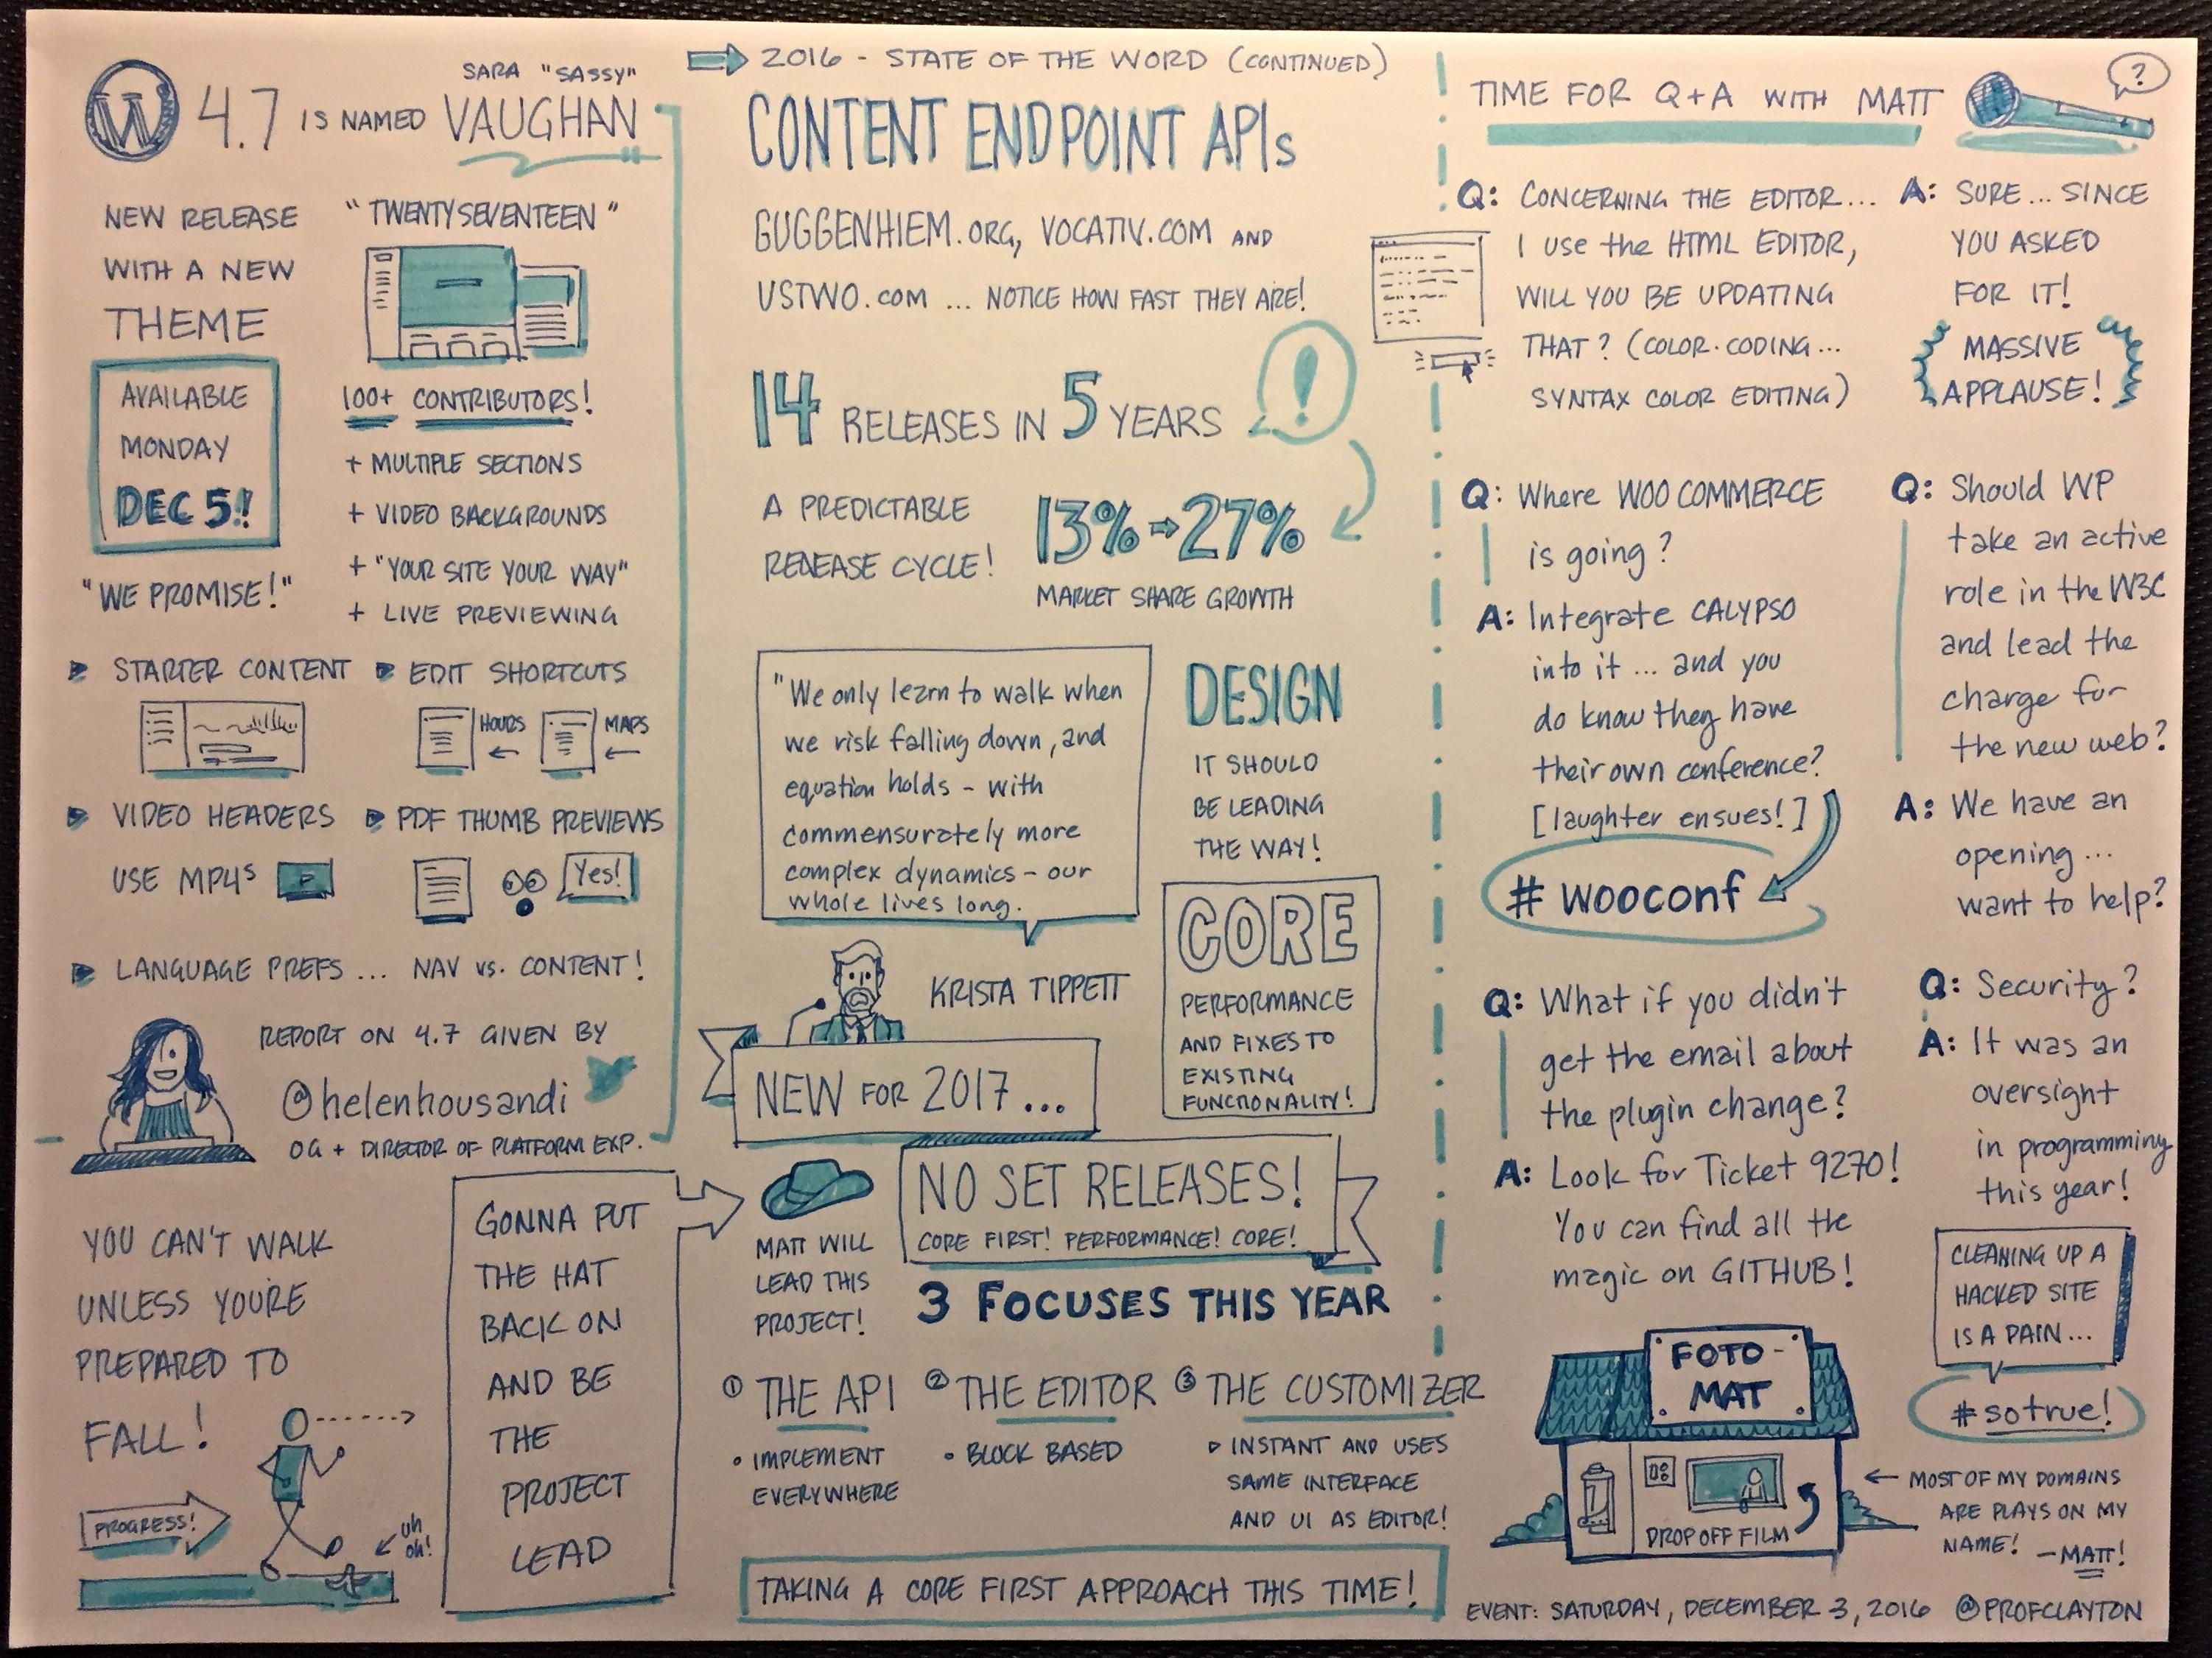 W 4.7 IS NAMED
SARA "SASSY"
VAUGHAN
NEW RELEASE
WITH A NEW
THEME
AVAILABLE
MONDAY
DEC 5!!
"WE PROMISE!"
"TWENTYSEVENTEEN"
100+ CONTRIBUTORS!
+ MULTIPLE SECTIONS
+ VIDEO BACKGROUNDS
+ "YOUR SITE YOUR WAY"
+ LIVE PREVIEWING
STARTER CONTENT
EDIT SHORTCUTS
HOURS
MAPS
VIDEO HEADERS
USE MP4s
PDF THUMB PREVIEWS
Yes!
LANGUAGE PREFS... NAV vs. CONTENT!
REPORT ON 4.7 GIVEN BY
@helenhousandi
OG + DIRECTOR OF PLATFORM EXP.
YOU CAN'T WALK
UNLESS YOU'RE
PREPARED TO
FALL!
PROGRESS!
uh
oh!
GONNA PUT
THE HAT
BACK ON
AND BE
THE
PROJECT
LEAD
2016 - STATE OF THE WORD (CONTINUED)
CONTENT ENDPOINT APIs
GUGGENHIEM.ORG, VOCATIV.COM AND
USTWO.COM ... NOTICE HOW FAST THEY ARE!
14 RELEASES IN 5 YEARS
!
A PREDICTABLE
RELEASE CYCLE!
13% → 27%
MARKET SHARE GROWTH
"We only learn to walk when
we risk falling down, and
equation holds - with
commensurately more
complex dynamics - our
whole lives long.
KRISTA TIPPETT
DESIGN
IT SHOULD
BE LEADING
THE WAY!
CORE
PERFORMANCE
AND FIXES TO
EXISTING
FUNCTIONALITY!
NEW FOR 2017...
NO SET RELEASES!
CORE FIRST! PERFORMANCE! CORE!
MATT WILL
LEAD THIS
PROJECT!
3 FOCUSES THIS YEAR
① THE API
• IMPLEMENT
EVERYWHERE
② THE EDITOR
• BLOCK BASED
③ THE CUSTOMIZER
INSTANT AND USES
SAME INTERFACE
AND UI AS EDITOR!
TAKING A CORE FIRST APPROACH THIS TIME!
TIME FOR Q+A WITH MATT
?
Q: CONCERNING THE EDITOR...
I use the HTML EDITOR,
WILL YOU BE UPDATING
THAT? (COLOR-CODING...
SYNTAX COLOR EDITING)
A: SURE... SINCE
YOU ASKED
FOR IT!
MASSIVE
APPLAUSE!
Q: Where WOO COMMERCE
is going?
A: Integrate CALYPSO
into it ... and you
do know they have
their own conference?
[laughter ensues!]
# wooconf
Q: Should WP
take an active
role in the W3C
and lead the
charge for
the new web?
A: We have an
opening ...
want to help?
Q: What if you didn't
get the email about
the plugin change?
A: Look for Ticket 9270!
You can find all the
magic on GITHUB!
Q: Security?
A: It was an
oversight
in programming
this year!
CLEANING UP A
HACKED SITE
IS A PAIN...
#sotrue!
FOTO-
MAT
DROP OFF FILM
MOST OF MY DOMAINS
ARE PLAYS ON MY
NAME! - MATT!
EVENT: SATURDAY, DECEMBER 3, 2016 @PROFCLAYTON